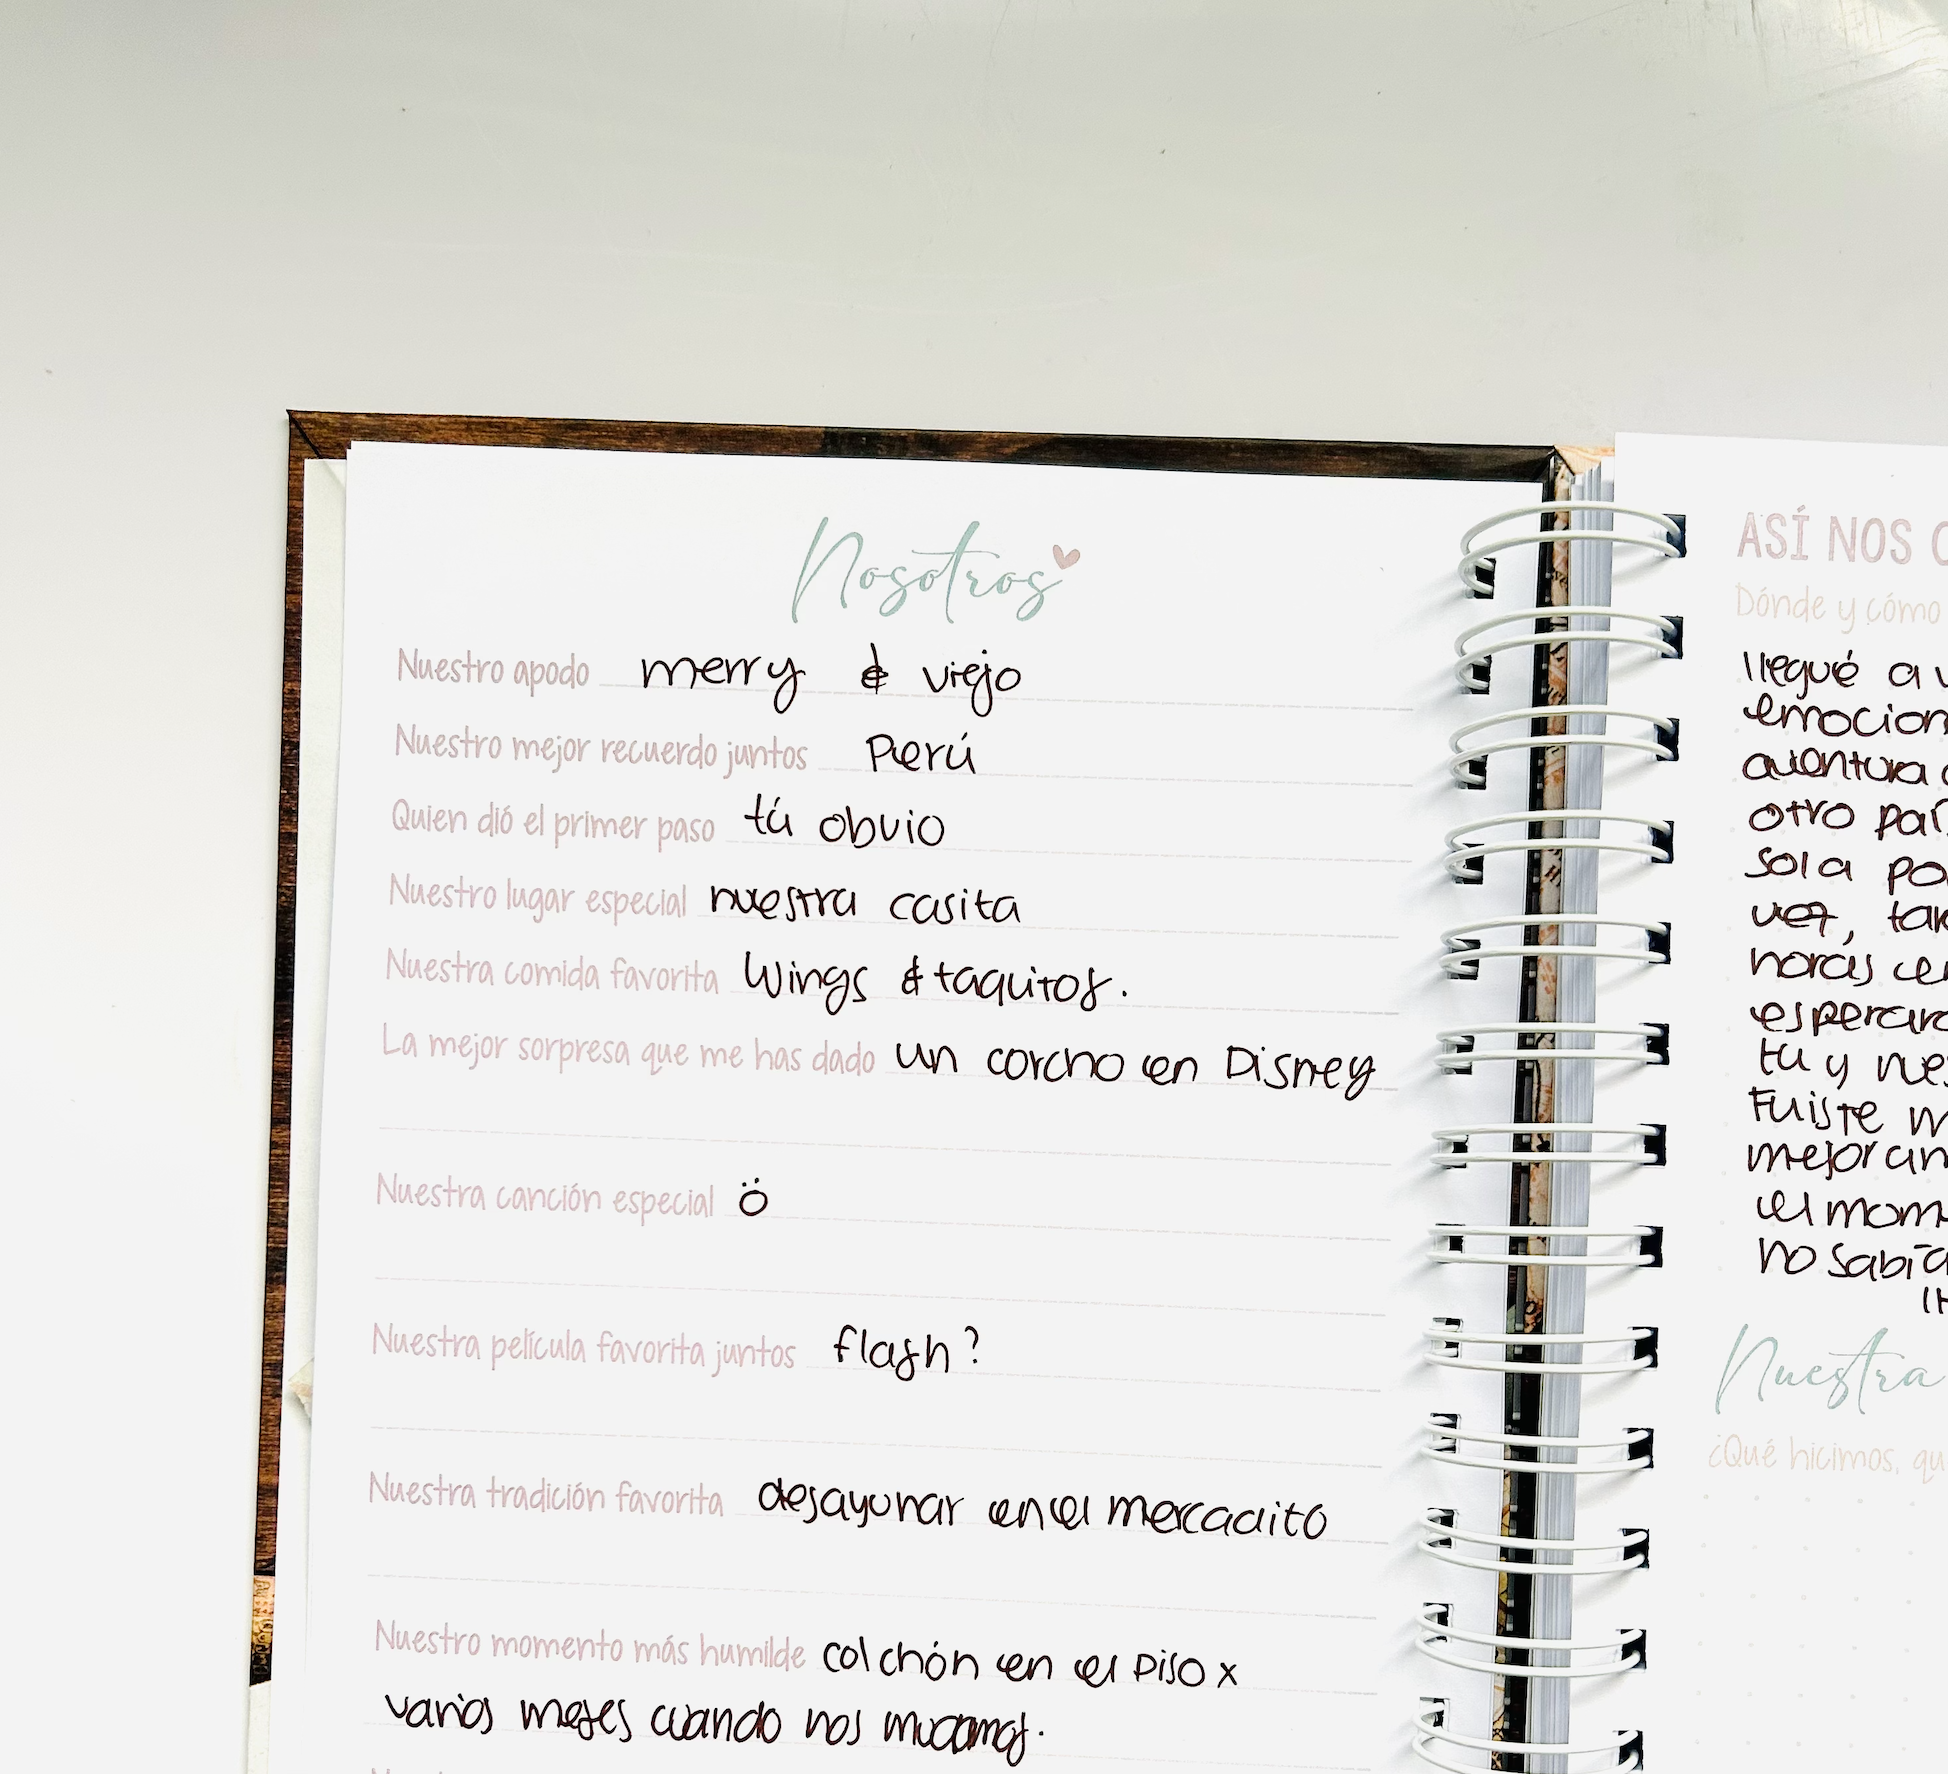 Nosotros
Nuestro apodo merry & viejo
Nuestro mejor recuerdo juntos Perú
Quien dió el primer paso tú obvio
Nuestro lugar especial nuestra casita
Nuestra comida favorita Wings & taquitos.
La mejor sorpresa que me has dado un corcho en Disney
Nuestra canción especial ö
Nuestra película favorita juntos flash?
Nuestra tradición favorita desayunar en el mercadito
Nuestro momento más humilde colchón en el piso x
varios meses cuando nos mudamos.
ASÍ NOS
Dónde y cómo
llegué a
emocion
aventura
otro
sola
vez,
horas
tu y
Fuiste
mejor
el mom
no sabía
Nuestra
¿Qué hicimos,